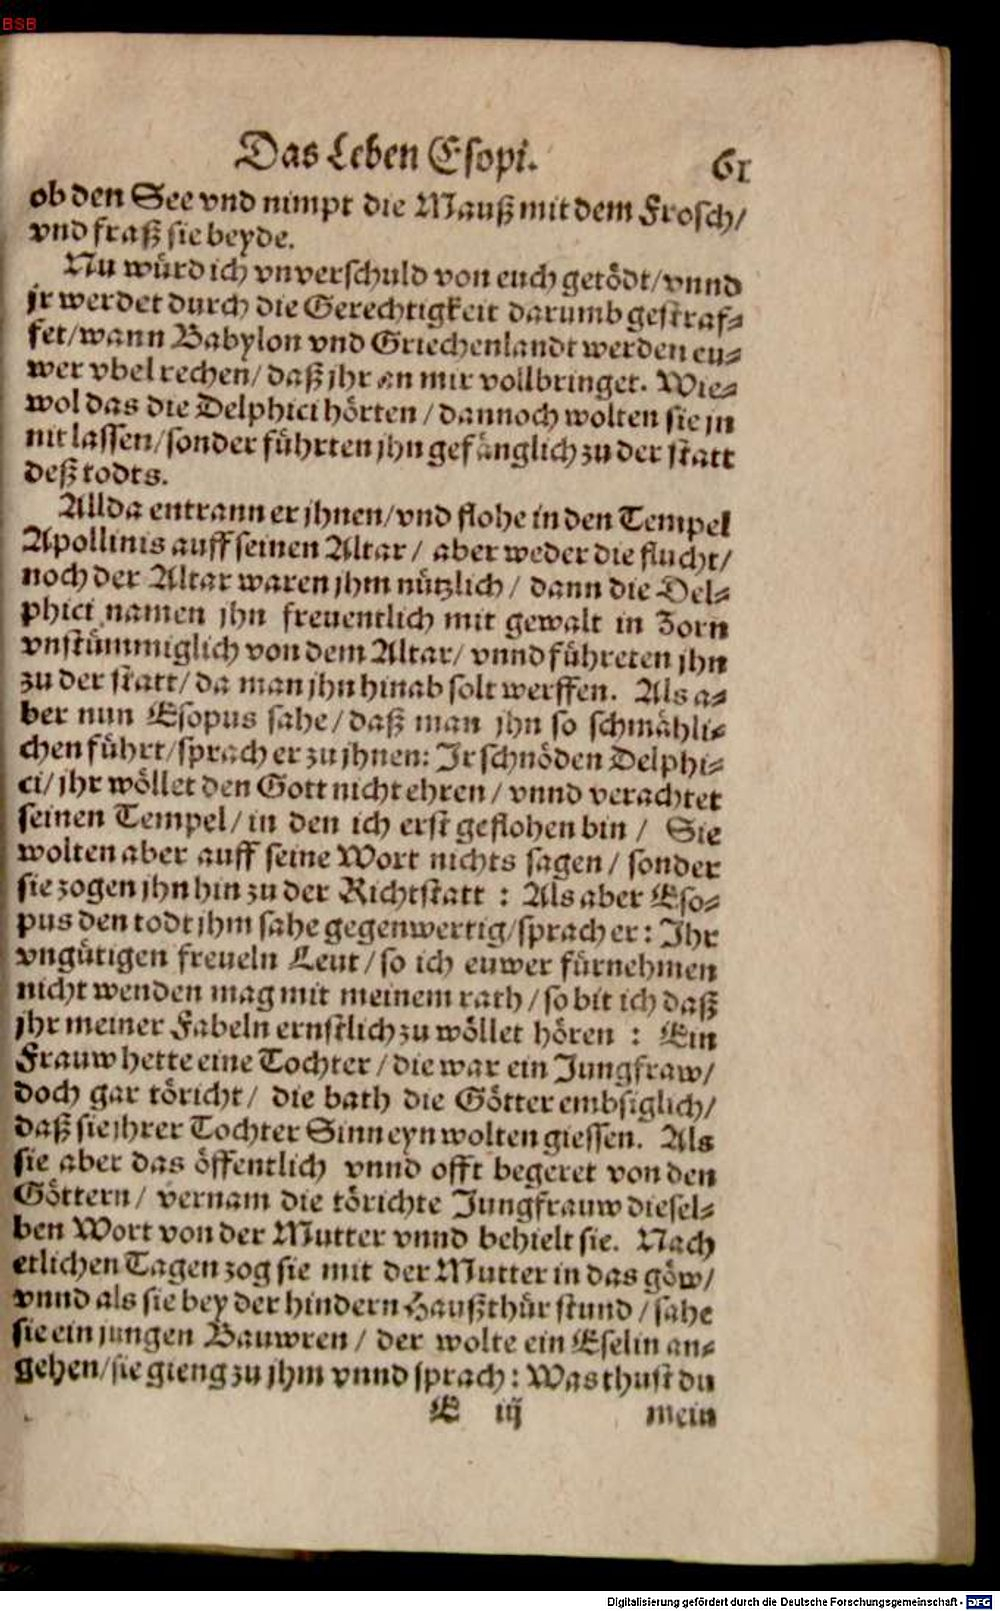 BSB
Das Leben Esopi. 61
ob den See vnd nimpt die Mauß mit dem Frosch/
vnd fraß sie beyde.
Nu würd ich vnverschuld von euch getödt/vnnd
jr werdet durch die Gerechtigkeit darumb gestraf-
fet/wann Babylon vnd Griechenlandt werden eu-
wer vbel rechen/ daß jhr an mir vollbringet. Wie-
wol das die Delphici hörten / dannoch wolten sie jn
nit lassen/sonder führten jhn gefänglich zu der statt
deß todts.
Allda entrann er jhnen/vnd flohe in den Tempel
Apollinis auff seinen Altar / aber weder die flucht/
noch der Altar waren jhm nützlich / dann die Del-
phici namen jhn freuentlich mit gewalt in Zorn
vnstümmiglich von dem Altar/ vnnd führeten jhn
zu der statt/ da man jhn hinab solt werffen. Als a-
ber nun Esopus sahe/daß man jhn so schmähli-
chen führt/sprach er zu jhnen: Ir schnöden Delphi-
ci/ jhr wöllet den Gott nicht ehren / vnnd verachtet
seinen Tempel/in den ich erst geflohen bin / Sie
wolten aber auff seine Wort nichts sagen / sonder
sie zogen jhn hin zu der Richtstatt : Als aber Eso-
pus den todt jhm sahe gegenwertig/sprach er: Ihr
vngütigen freueln Leut /so ich euwer fürnehmen
nicht wenden mag mit meinem rath /so bit ich daß
jhr meiner Fabeln ernstlich zu wöllet hören : Ein
Frauw hette eine Tochter / die war ein Jungfraw/
doch gar töricht/ die bath die Götter embsiglich/
daß sie jhrer Tochter Sinn eyn wolten giessen. Als
sie aber das öffentlich vnnd offt begeret von den
Göttern / vernam die törichte Jungfrauw diesel-
ben Wort von der Mutter vnnd behielt sie. Nach
etlichen Tagen zog sie mit der Mutter in das göw/
vnnd als sie bey der hindern Haußthür stund /sahe
sie ein jungen Bauwren / der wolte ein Eselin an-
gehen/sie gieng zu jhm vnnd sprach: Was thust du
E iij mein
Digitalisierung gefördert durch die Deutsche Forschungsgemeinschaft - DFG